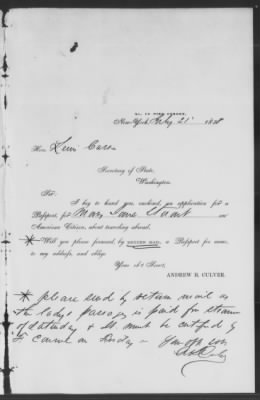 New-York, May 21st 1858
Hon. Lewis Cass
Secretary of State,
Washington.
Sir:
I beg to hand you, enclosed, an application for a
Passport, for Mary Jane Stuart an
American Citizen, about traveling abroad.
Will you please forward, by RETURN MAIL, a Passport for same,
to my address, and oblige
Your ob't Serv't,
ANDREW B. CULVER.
* please send by return mail as
the lady's passage is paid for steamer
of Saturday & must be certified by
consul on Friday -